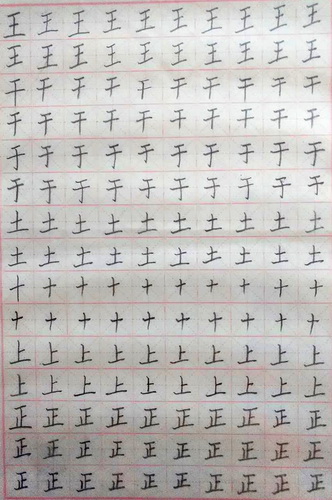 王王王王王王王王王王
王王王王王王王王王王
干干干干干干干干干干
干干干干干干干干干干
于于于于于于于于于于
于于于于于于于于于于
土土土土土土土土土土
土土土土土土土土土土
十十十十十十十十十十
十十十十十十十十十十
上上上上上上上上上上
上上上上上上上上上上
正正正正正正正正正正
正正正正正正正正正正
正正正正正正正正正正